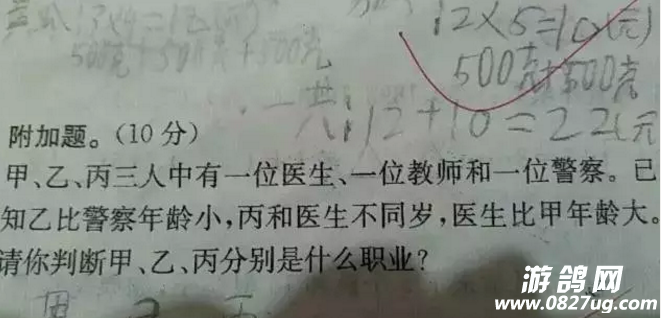 12×5=10(元)
500克+500克
一共:12+10=22(元
附加题。(10分)
甲、乙、丙三人中有一位医生、一位教师和一位警察。已
知乙比警察年龄小,丙和医生不同岁,医生比甲年龄大。
请你判断甲、乙、丙分别是什么职业?
游鸽网
www.0827ug.com